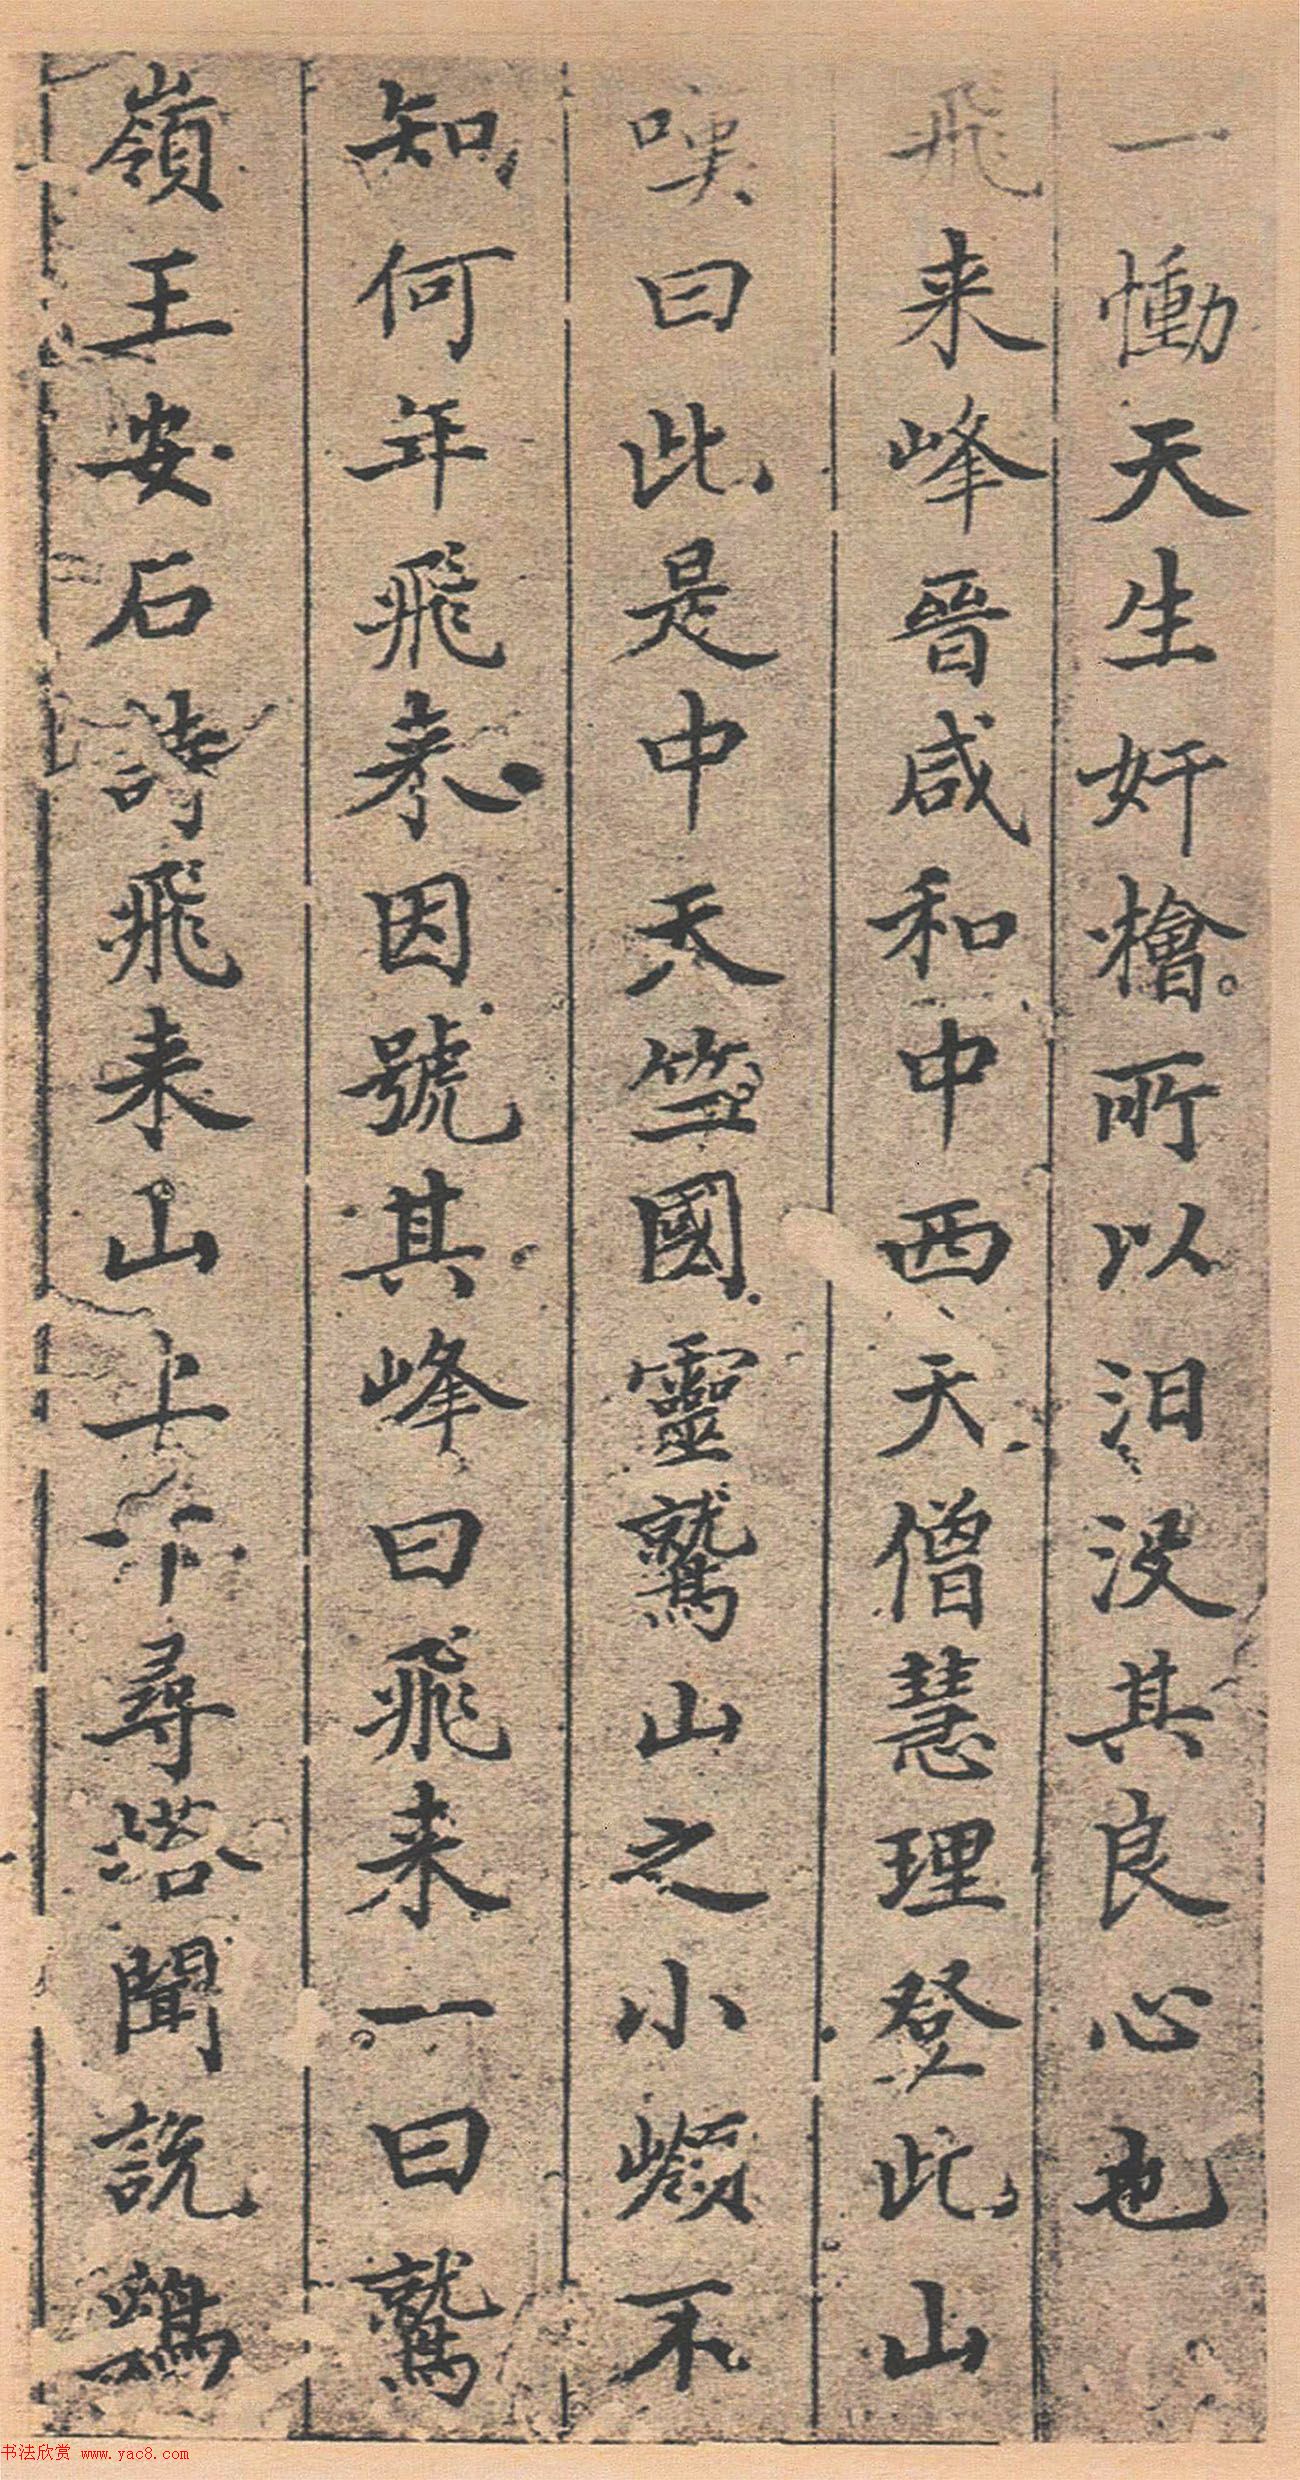 一慟天生奸檜所以汨没其良心也
飛来峰晉咸和中西天僧慧理登此山
嘆曰此是中天竺國靈鷲山之小嶺不
知何年飛来因號其峰曰飛来一曰鷲
嶺王安石詩飛来山上千尋塔聞說鷄
书法欣赏 www.yac8.com